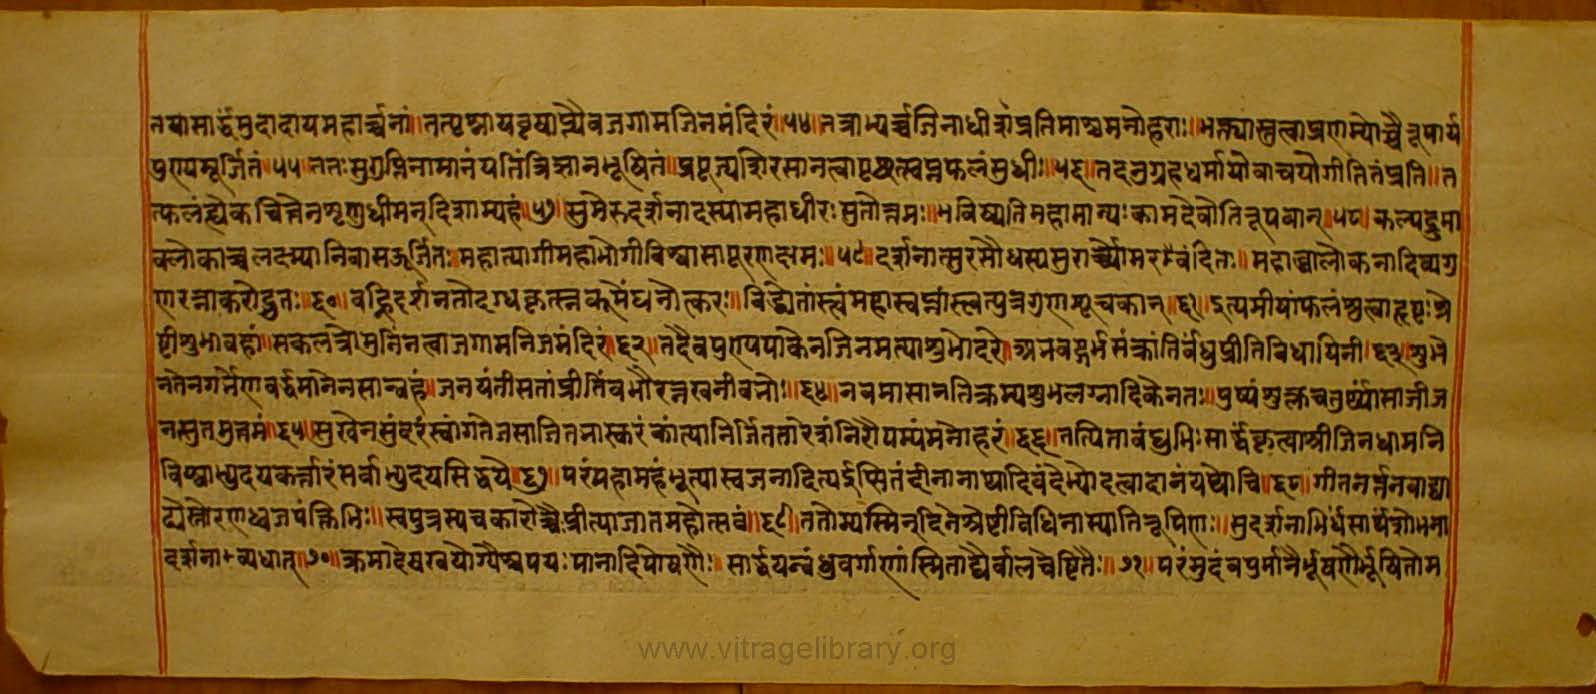 तयासार्द्धंमुदादायमहार्च्चनां॥तत्पृष्टायवृषाप्त्यैवजगामजिनमंदिरं॥५४॥तत्राभ्यर्च्चजिनाधीशप्रतिमाश्चमनोहराः॥भक्त्यास्तुत्वाप्रणम्योच्चैरुपार्य
पुण्यमूर्जितं॥५५॥ततःसुगुप्तिनामानंयतिंत्रिज्ञानभूषितं॥प्रपूज्यशिरसानत्वापृछत्स्वप्नफलंसुधीः॥५६॥तदनुग्रहधर्मायोवाचयोगीतितंप्रति॥त
त्फलंह्येकचित्तेनशृणुधीमन्दिशाम्यहं॥५७॥सुमेरुदर्शनादस्यामहाधीरःसुतोत्तमः॥भविष्यतिमहामान्यःकामदेवोतिरूपवान्॥५८॥कल्पद्रुमा
वलोकाच्चलक्ष्म्यानिवासऊर्जितः॥महात्यागीमहाभोगीविश्वासापूरणक्षमः॥५९॥दर्शनात्सुरसौधस्यसुरार्च्योमरवंदितः॥महाब्ध्यालोकनादिव्यगु
णरत्नाकरोद्भुतः॥६०॥वह्निदर्शनतोदग्धकृत्स्नकर्मेंधनोत्करः॥विद्ध्येतांस्त्वंमहास्वप्नांस्त्वत्पुत्रगुणसूचकान्॥६१॥इत्यमीषांफलंश्रुत्वाहृष्टःश्रे
ष्टीशुभावहां॥सकलत्रोमुनिंनत्वाजगामनिजमंदिरं॥६२॥तदैवपुण्यपाकेनजिनमत्याशुभोदरे॥अभवद्गर्भसंक्रांतिर्बंधुप्रीतिविधायिनी॥६३॥शुभे
नतेनगर्भेणवर्द्धमानेनसान्वहं॥जनयंतीसतांप्रीतिंबभौरत्नखनीवभोः॥६४॥नवमासानतिक्रम्यशुभलग्नादिकेनतः॥पुष्यंशुक्लचतुर्थ्यांसाजीज
नत्सुतमुत्तमं॥६५॥सुखेनसुंदरंस्वांगतेजसाजितभास्करंकांत्यानिर्जिततारेशंनिरौपम्यंमनोहरं॥६६॥तत्पिताबंधुभिःसार्द्धंकृत्वाश्रीजिनधामनि
विश्वाभ्युदयकर्त्तारंसर्वाभ्युदयसिद्धये॥६७॥परंमहामहंभूत्यास्वजनादित्यईप्सितंदीनानाथादिबंदेभ्योदत्वादानंयथोचि॥६८॥गीतनर्त्तनवाद्या
द्यैस्तोरणध्वजपंक्तिभिः॥स्वपुत्रस्यचकारोच्चैःप्रीत्याजातमहोत्सवं॥६९॥ततोन्यस्मिन्दिनेश्रेष्टीविधिनास्यातिरूपिणः॥सुदर्शनाभिधंसार्थंशोभना
दर्शनाव्यधात्॥७०॥क्रमादेषखयोग्यैश्चपयःपानादिपोषणैः॥सार्द्धंयन्बंधुवर्गाणांस्मिताद्यैर्बालचेष्टितैः॥७१॥परंमुदंवपुर्मानैर्भूषणैर्भूषितोम
www.vitragelibrary.org